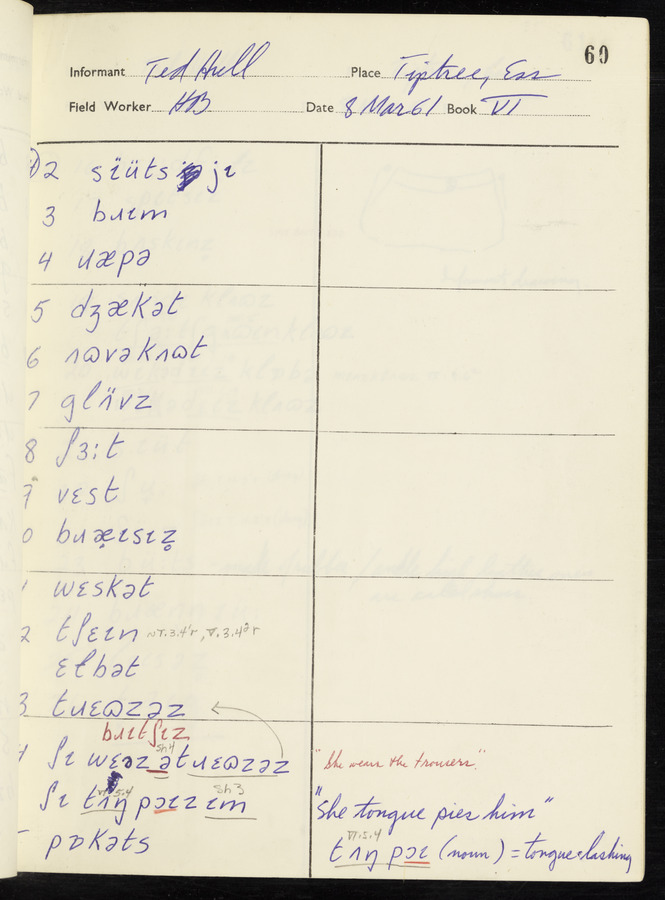 69
Informant Ted Hull Place Tiptree, Ess
Field Worker HB Date 8 Mar 61 Book VI
2 sɪ̈üts jɪ
3 bɹɪm
4 ɹæpə
5 dʒækət
6 ʌɷvəkʌɷt
7 glʌ̈vz
8 ʃɜ:t
9 vɛst
0 bɹæ̣ɪsɪẓ
1 wɛskət
2 tʃɛɪn
ɛɫbət
3 tɹɛɷzəz
bɹɪtʃɪz
4 ʃɪ wɛəz ətɹɛɷzəz "She wears the trousers".
ʃɪ tʌŋ pɔɪz ɪm "She tongue pies him"
tʌŋ pɔɪ (noun) = tongue lashing
pɒkəts